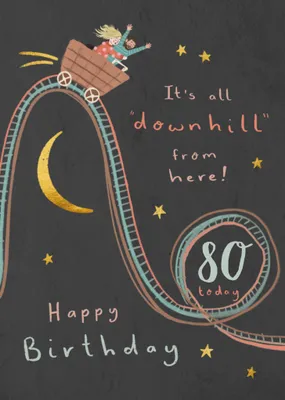 It's all
"downhill"
from
here!
80
today
Happy
Birthday